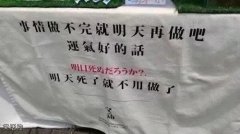 事情做不完就明天再做吧
運氣好的話
明日死ぬだろうか?
明天死了就不用做了